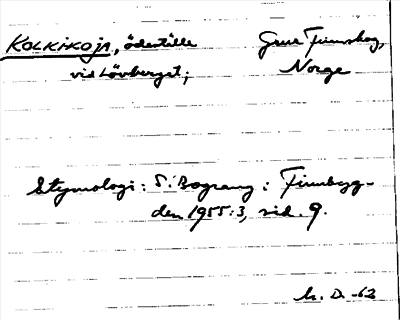 KOLKIKOJA, ödeställe
vid Lövberget;
Grue Finnskog,
Norge
Etymologi: S. Bograng: Finnbyg-
den 1955:3, sid. 9.
M. D. -63